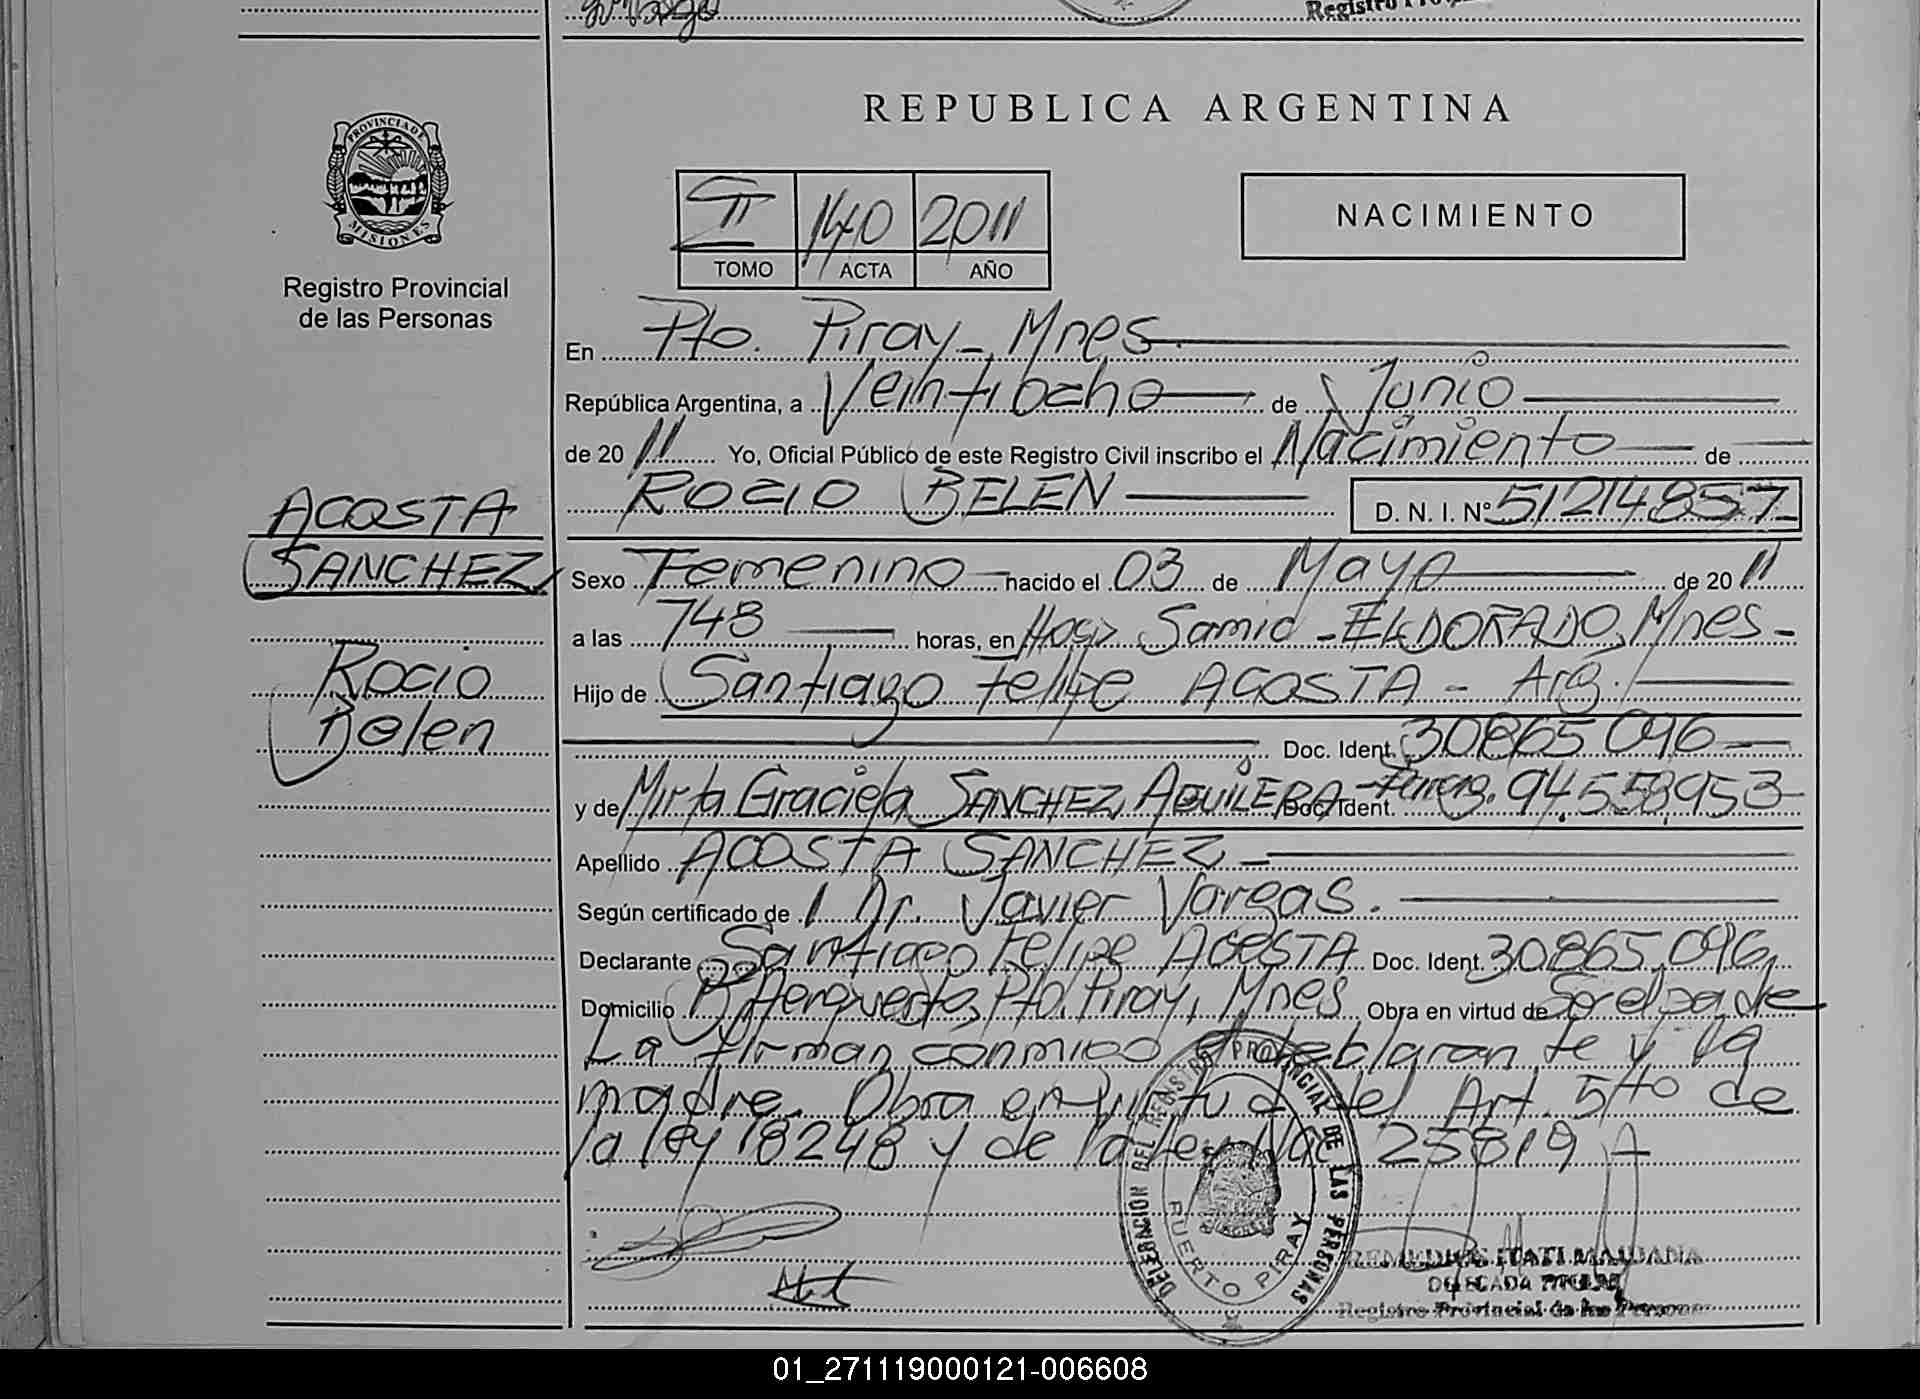 Registro
REPUBLICA ARGENTINA
PROVINCIA DE
MISIONES
Registro Provincial
de las Personas
II 140 2011
TOMO ACTA AÑO
NACIMIENTO
En Pto. Piray - Mnes.
República Argentina, a Veintiocho de Junio
de 2011 Yo, Oficial Público de este Registro Civil inscribo el Nacimiento de
ROCIO BELEN D. N. I. Nº 51214857
ACOSTA
SANCHEZ,
Rocio
Belen
Sexo Femenino nacido el 03 de Mayo de 2011
a las 748 horas, en Hosp Samic - ELDORADO, Mnes -
Hijo de Santiago Felipe ACOSTA - Arg.
Doc. Ident. 30865096
y de Mirta Graciela SANCHEZ AGUILERA Doc. Ident. 94.558.953
Apellido ACOSTA SANCHEZ -
Según certificado de Dr. Javier Vargas.
Declarante Santiago Felipe ACOSTA Doc. Ident. 30865.096
Domicilio Bº Aeropuerto, Pto. Piray, Mnes Obra en virtud de Ser el padre
La firman conmigo el declarante y la
madre. Obra en virtud del Art. 5to de
la ley 18248 y de la ley Nac 25819
DELEGACION DEL REGISTRO PROVINCIAL DE LAS PERSONAS
PUERTO PIRAY
REMEDIOS ITATI MAIDANA
DELEGADA TITULAR
Registro Provincial de las Personas
01_271119000121-006608